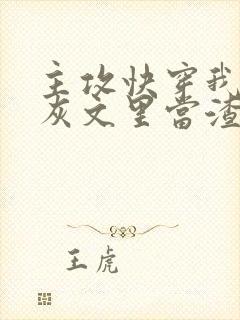 主攻快穿我
灰文里当渣
王虎